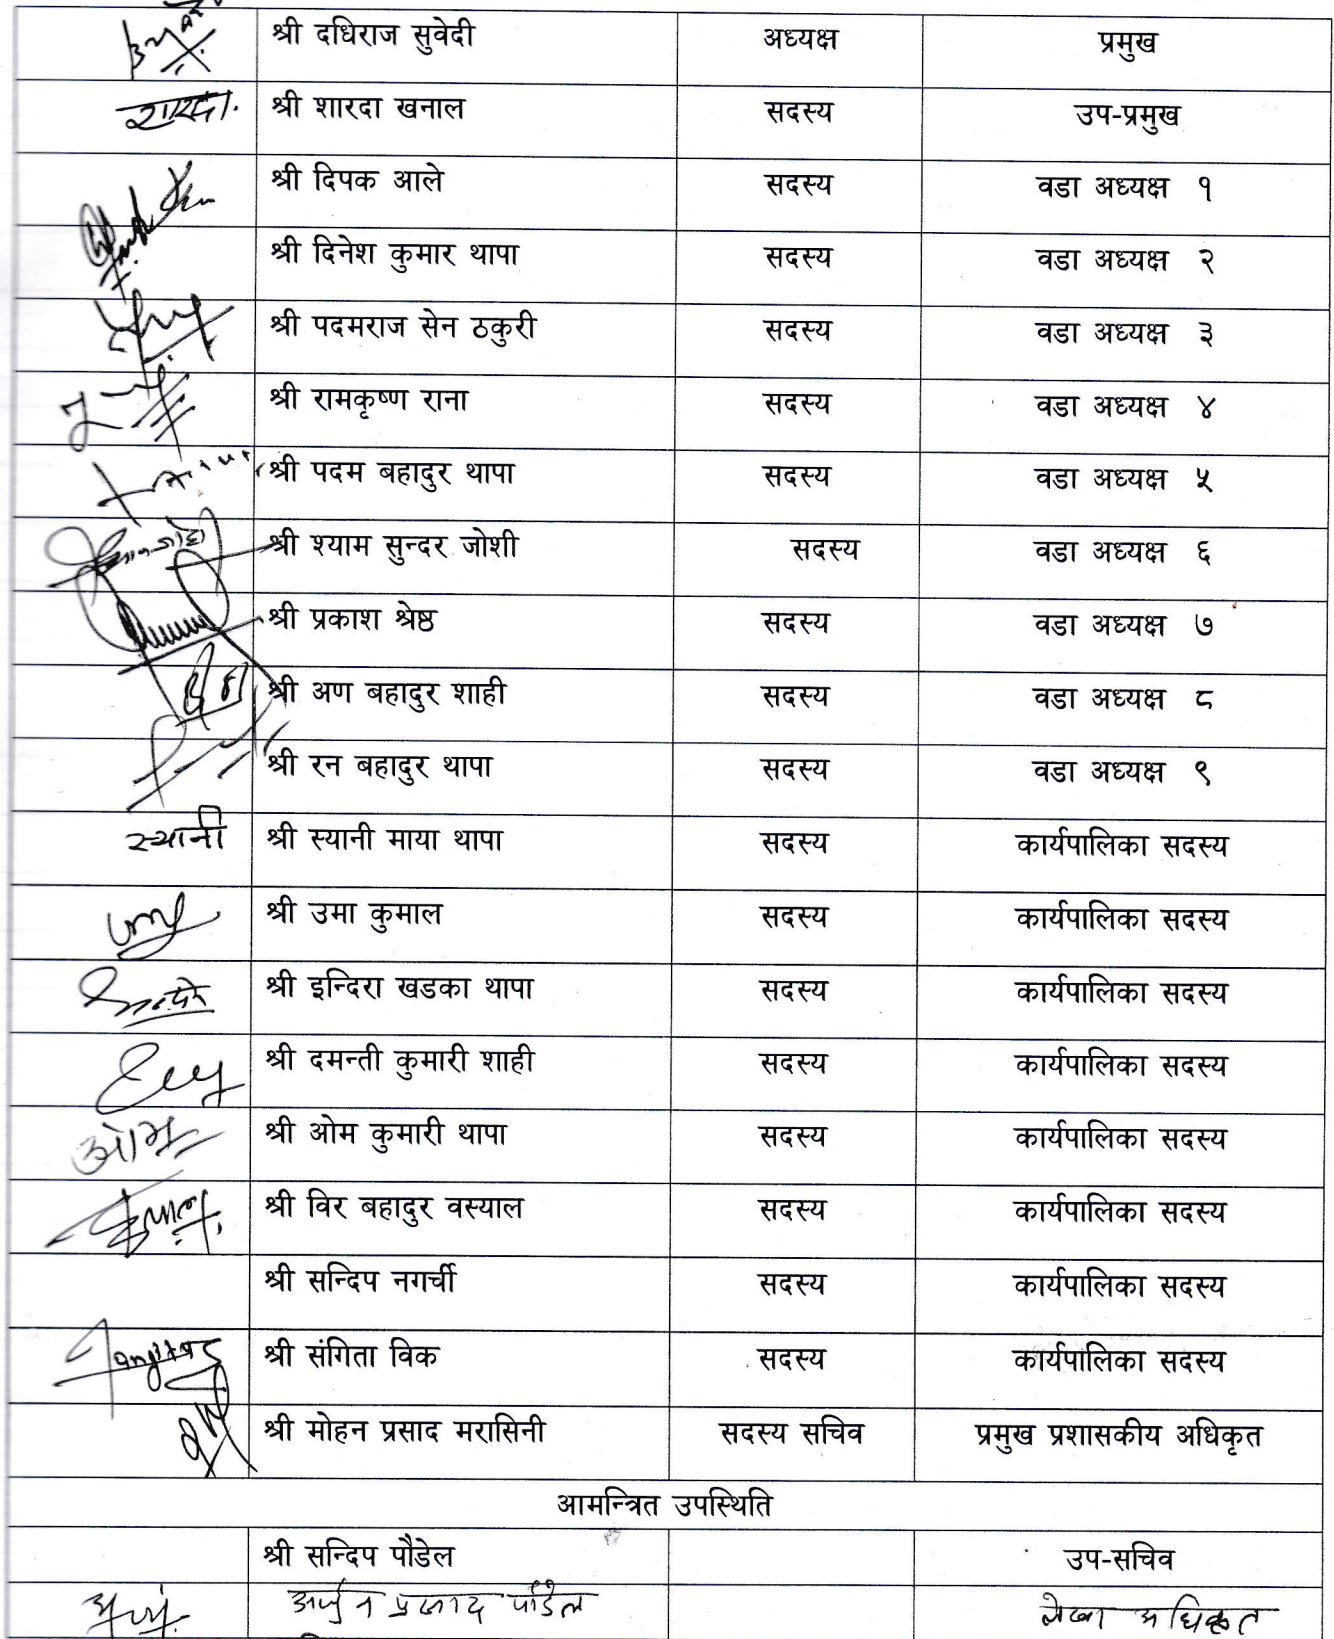 श्री दधिराज सुवेदी अध्यक्ष प्रमुख
शारदा. श्री शारदा खनाल सदस्य उप-प्रमुख
श्री दिपक आले सदस्य वडा अध्यक्ष १
श्री दिनेश कुमार थापा सदस्य वडा अध्यक्ष २
श्री पदमराज सेन ठकुरी सदस्य वडा अध्यक्ष ३
श्री रामकृष्ण राना सदस्य वडा अध्यक्ष ४
श्री पदम बहादुर थापा सदस्य वडा अध्यक्ष ५
श्री श्याम सुन्दर जोशी सदस्य वडा अध्यक्ष ६
श्री प्रकाश श्रेष्ठ सदस्य वडा अध्यक्ष ७
श्री अण बहादुर शाही सदस्य वडा अध्यक्ष ८
श्री रन बहादुर थापा सदस्य वडा अध्यक्ष ९
स्यानी श्री स्यानी माया थापा सदस्य कार्यपालिका सदस्य
श्री उमा कुमाल सदस्य कार्यपालिका सदस्य
श्री इन्दिरा खडका थापा सदस्य कार्यपालिका सदस्य
श्री दमन्ती कुमारी शाही सदस्य कार्यपालिका सदस्य
ओम श्री ओम कुमारी थापा सदस्य कार्यपालिका सदस्य
श्री विर बहादुर वस्याल सदस्य कार्यपालिका सदस्य
श्री सन्दिप नगर्ची सदस्य कार्यपालिका सदस्य
श्री संगिता विक सदस्य कार्यपालिका सदस्य
श्री मोहन प्रसाद मरासिनी सदस्य सचिव प्रमुख प्रशासकीय अधिकृत
आमन्त्रित उपस्थिति
श्री सन्दिप पौडेल उप-सचिव
अर्जुन प्रसाद पौडेल लेखा अधिकृत